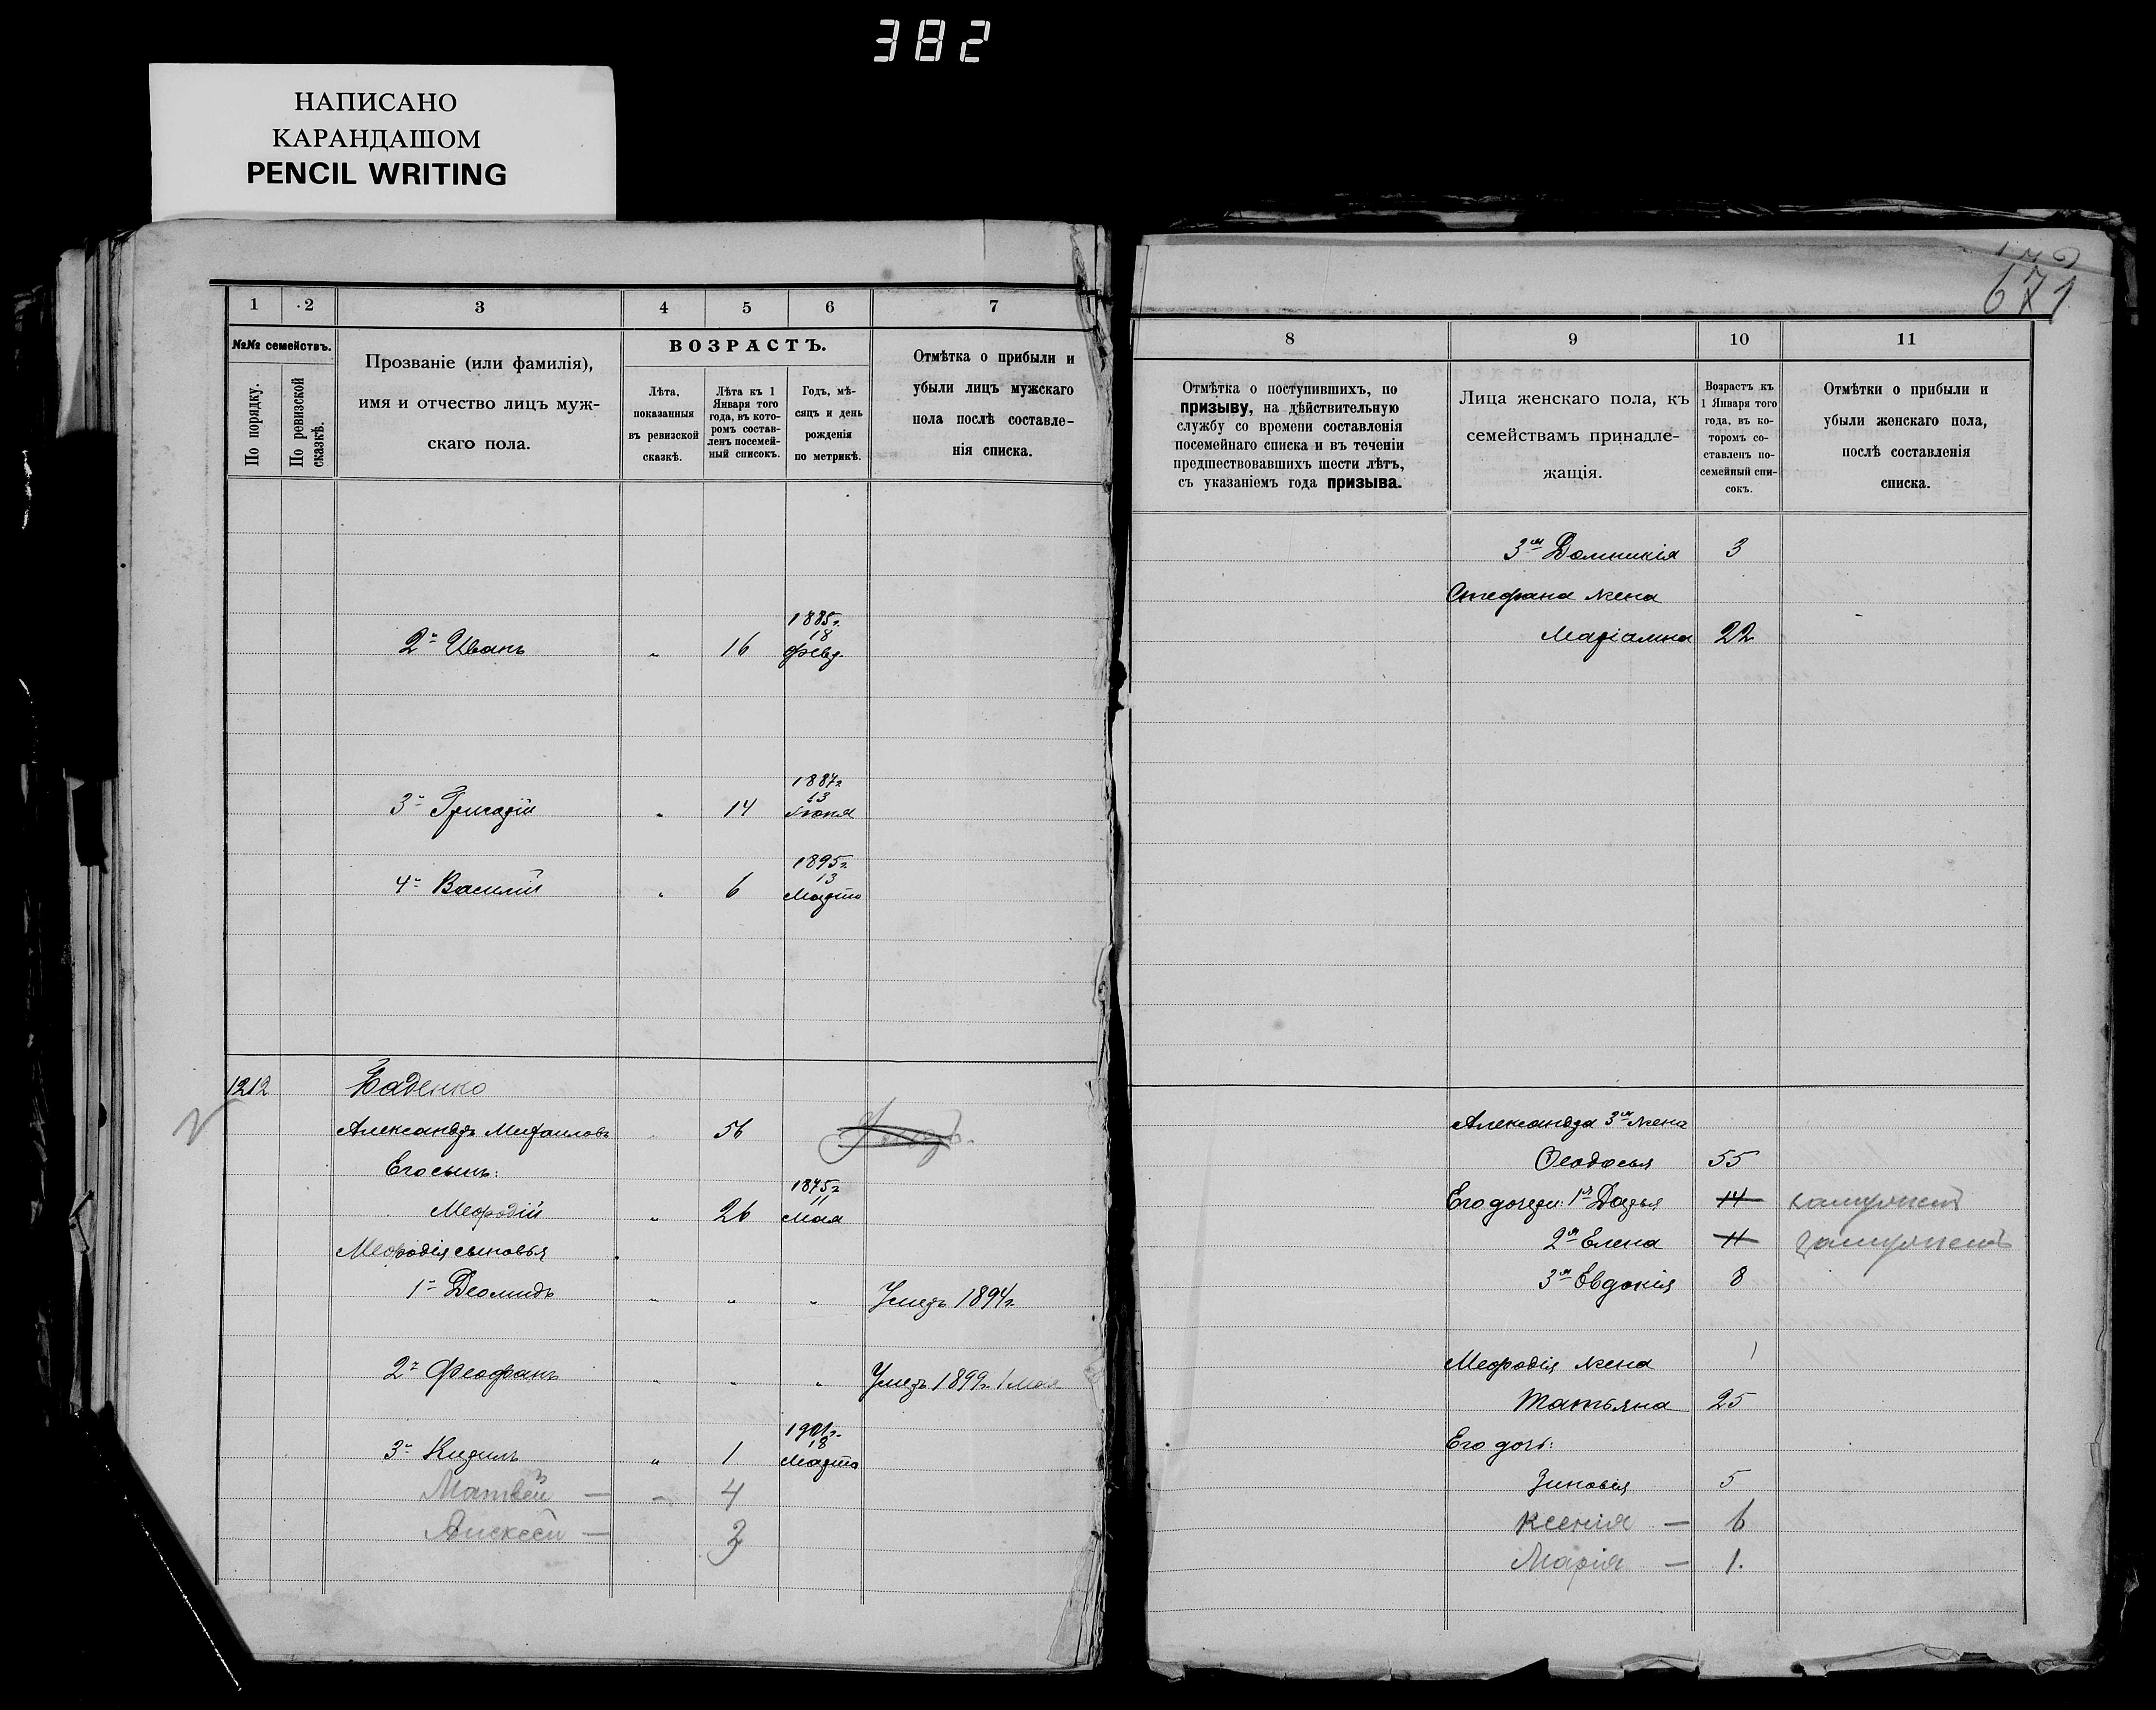 382
НАПИСАНО
КАРАНДАШОМ
PENCIL WRITING
1 2 3 4 5 6 7
№№ семействъ.
По порядку.
По ревизской сказкѣ.
Прозваніе (или фамилія),
имя и отчество лицъ муж-
скаго пола.
ВОЗРАСТЪ.
Лѣта,
показанныя
въ ревизской
сказкѣ.
Лѣта къ 1
Января того
года, въ кото-
ромъ состав-
ленъ посемей-
ный список.
Годъ, мѣ-
сяцъ и день
рожденія
по метрикѣ.
Отмѣтка о прибыли и
убыли лицъ мужскаго
пола послѣ составле-
нія списка.
1885г.
18
2й Иванъ " 16 февр.
1887г
13
3й Григорій " 14 Іюня
1895г.
13
4й Василій " 6 Марта
1212
Александръ Михаиловъ " 56
Его сынъ:
1875г
11
Мефодій " 26 Мая
Мефодія сыновья
1й Деомидъ " " " Умеръ 1894г.
2й Феофанъ " " " Умеръ 1899г. 1 Мая
1901г.
18
3й Кирилъ " 1 Марта
Матвей — - 4
Алексей — 3
671
8 9 10 11
Отмѣтка о поступившихъ, по
призыву, на дѣйствительную
службу со времени составленія
посемейнаго списка и въ теченіи
предшествовавшихъ шести лѣтъ,
съ указаніемъ года призыва.
Лица женскаго пола, къ
семействамъ принадле-
жащія.
Возрастъ къ
1 Января того
года, въ ко-
торомъ со-
ставленъ по-
семейный спи-
сокъ.
Отмѣтки о прибыли и
убыли женскаго пола,
послѣ составленія
списка.
3я Домникія 3
Стефана жена
Маріамна 22
Александра 3я жена
Феодосья 55
Его дочери: 1я Дарья 14 замужемъ
2я Елена 11 замужемъ
3я Евдокія 8
Мефодія жена
Татьяна 25
Его дочь:
Зиновія 5
Ксенія — 6
Марія — 1.